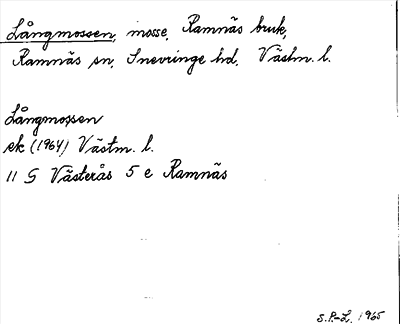 Långmossen, mosse, Ramnäs bruk,
Ramnäs sn, Snevringe hd, Västm. l.
Långmossen
ek (1964) Västm. l.
11 G Västerås 5 e Ramnäs
S.P-L. 1965